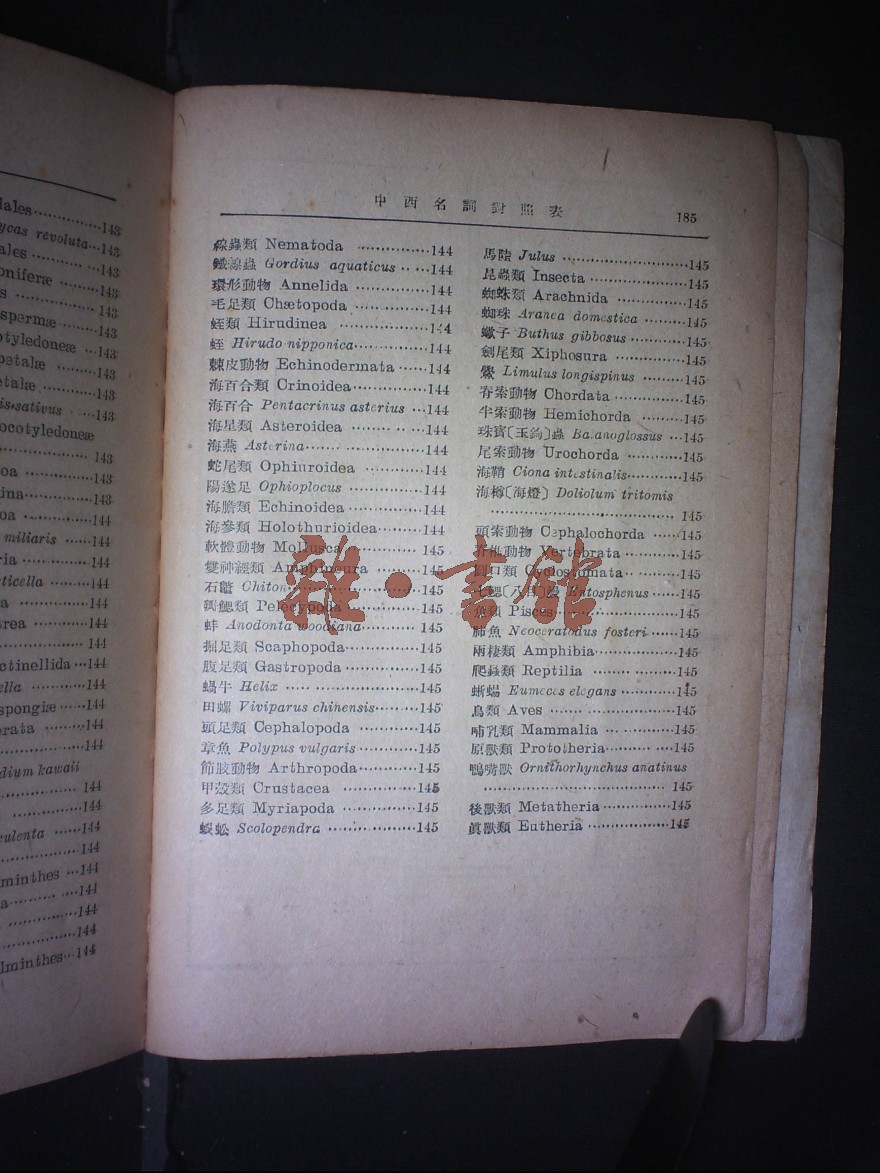 dales……………143
ycas revoluta…143
ales……………143
oniferæ ………143
s ………………143
spermæ ………143
otyledoneæ …143
petalæ …………143
etalæ …………143
is sativus · …143
ocotyledoneæ
……………… 143
oa ………………143
ina………………143
oa ………………144
miliaris ……144
ria ………………144
ticella …………144
a ………………144
area ……………144
………………… 144
ctinellida …144
ella ……………144
spongiæ ………144
rata ……………144
…………………144
dium kawaii
……………… 144
……………… 144
culenta ………144
…………………144
minthes …144
a……………… 144
………………144
…………………144
lminthes…144
中西名詞對照表 185
線蟲類 Nematoda ………………144
鐵線蟲 Gordius aquaticus ‥ …144
環形動物 Annelida ………………144
毛足類 Chætopoda ………………144
蛭類 Hirudinea ………………144
蛭 Hirudo nipponica………………144
棘皮動物 Echinodermata ……144
海百合類 Crinoidea………………144
海百合 Pentacrinus asterius …144
海星類 Asteroidea ………………144
海燕 Asterina………………………144
蛇尾類 Ophiuroidea ……………144
陽遂足 Ophioplocus ………………144
海膽類 Echinoidea ………………144
海參類 Holothurioidea…………144
軟體動物 Mollusca ……………… 145
雙神經類 Amphineura …………145
石鼈 Chiton…………………………145
瓣鰓類 Pelecypoda ………………145
蚌 Anodonta woodiana…………145
掘足類 Scaphopoda………………145
腹足類 Gastropoda ………………145
蝸牛 Helix ……………………………145
田螺 Viviparus chinensis………145
頭足類 Cephalopoda ……………145
章魚 Polypus vulgaris……………145
節肢動物 Arthropoda……………145
甲殼類 Crustacea ………………145
多足類 Myriapoda ………………145
蜈蚣 Scolopendra …………………145
馬陸 Julus ……………………………145
昆蟲類 Insecta ……………………145
蜘蛛類 Arachnida …………………145
蜘蛛 Aranea domestica …………145
蠍子 Buthus gibbosus ……………145
劍尾類 Xiphosura …………………145
鱟 Limulus longispinus …………145
脊索動物 Chordata ………………145
半索動物 Hemichorda ……………145
珠寶〔玉鉤〕蟲 Balanoglossus …145
尾索動物 Urochorda ………………145
海鞘 Ciona intestinalis……………145
海樽〔海燈〕 Doliolum tritomis
………………………………… 145
頭索動物 Cephalochorda ………145
脊椎動物 Vertebrata ………………145
圓口類 Cyclostomata ……………145
Entosphenus ……145
魚類 Pisces……………………………145
肺魚 Neoceratodus fosteri ……145
兩棲類 Amphibia……………………145
爬蟲類 Reptilia ……………………145
蜥蜴 Eumeces elegans ……………145
鳥類 Aves ………………………………145
哺乳類 Mammalia …………………145
原獸類 Prototheria…………………145
鴨嘴獸 Ornithorhynchus anatinus
………………………………… 145
後獸類 Metatheria…………………145
眞獸類 Eutheria ……………………145
雜·書館